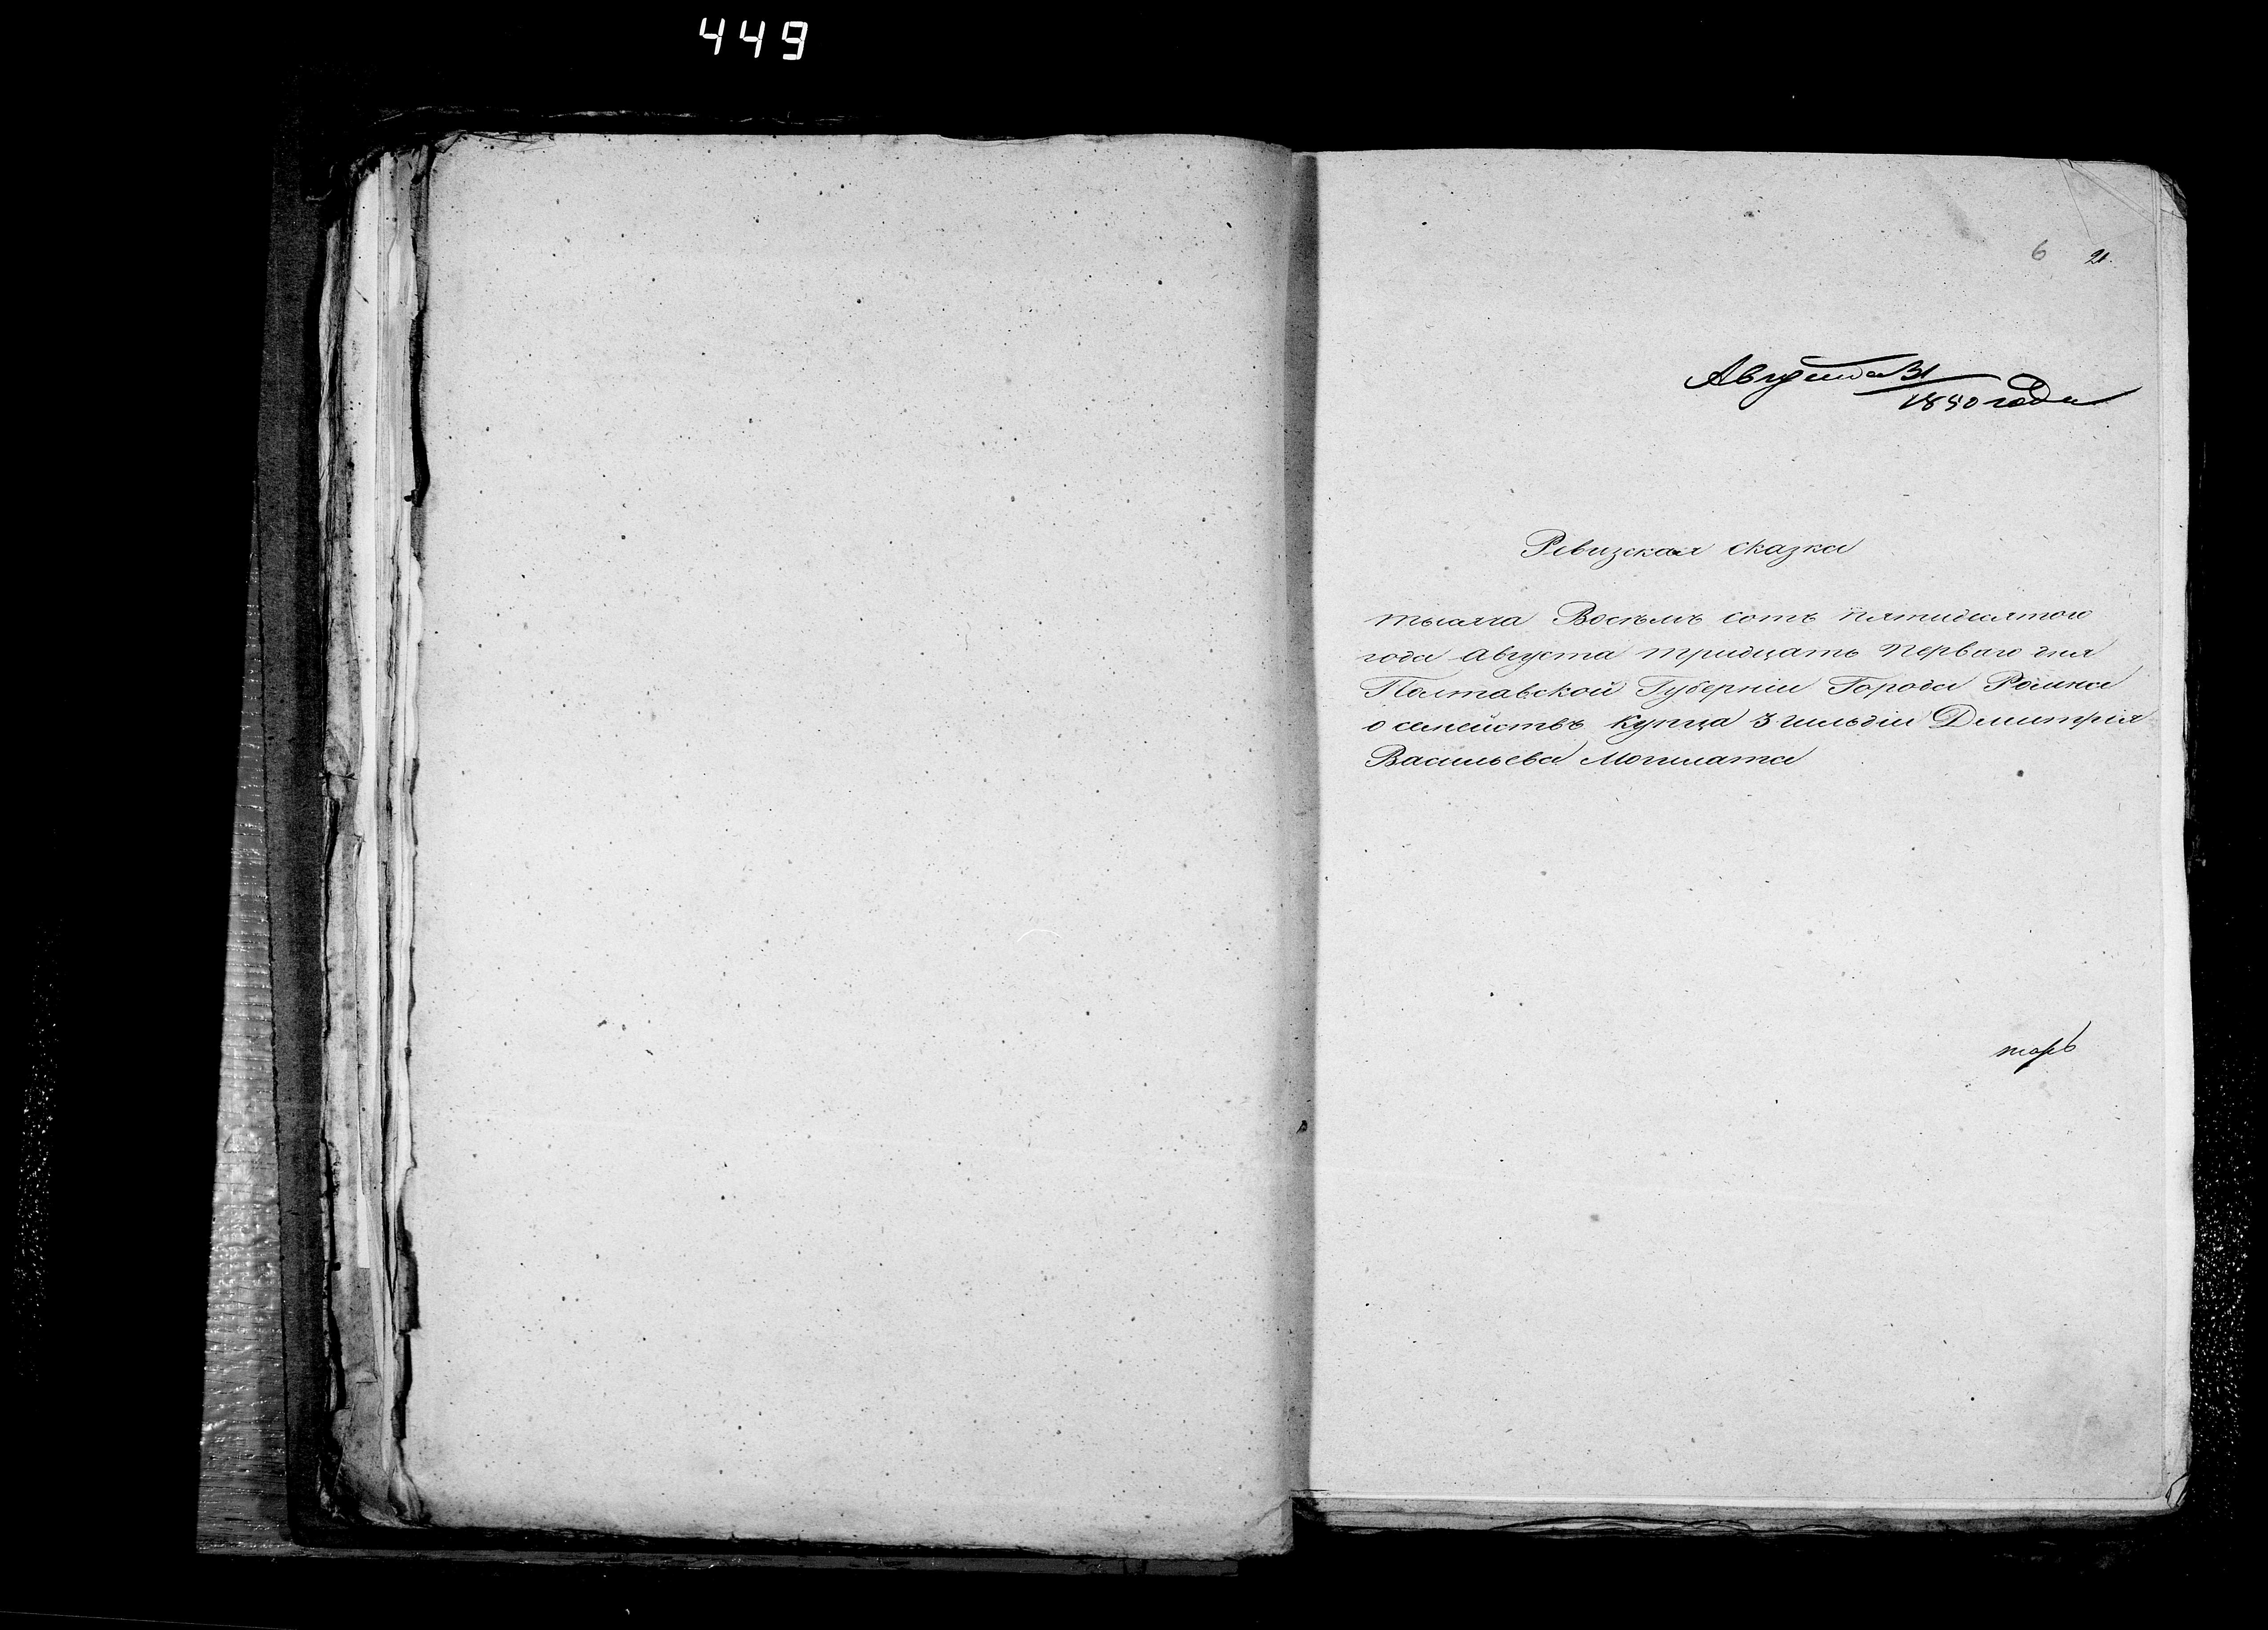 449
6 21.
Августа 31
1850 года
Ревизская сказка
тысяча Восемъ сотъ пятидесятого
года Августа тридцать перваго дня
Полтавской Губерніи Города Ромна
о семействѣ купца 3 гильдіи Димитрія
Васильева Могилата